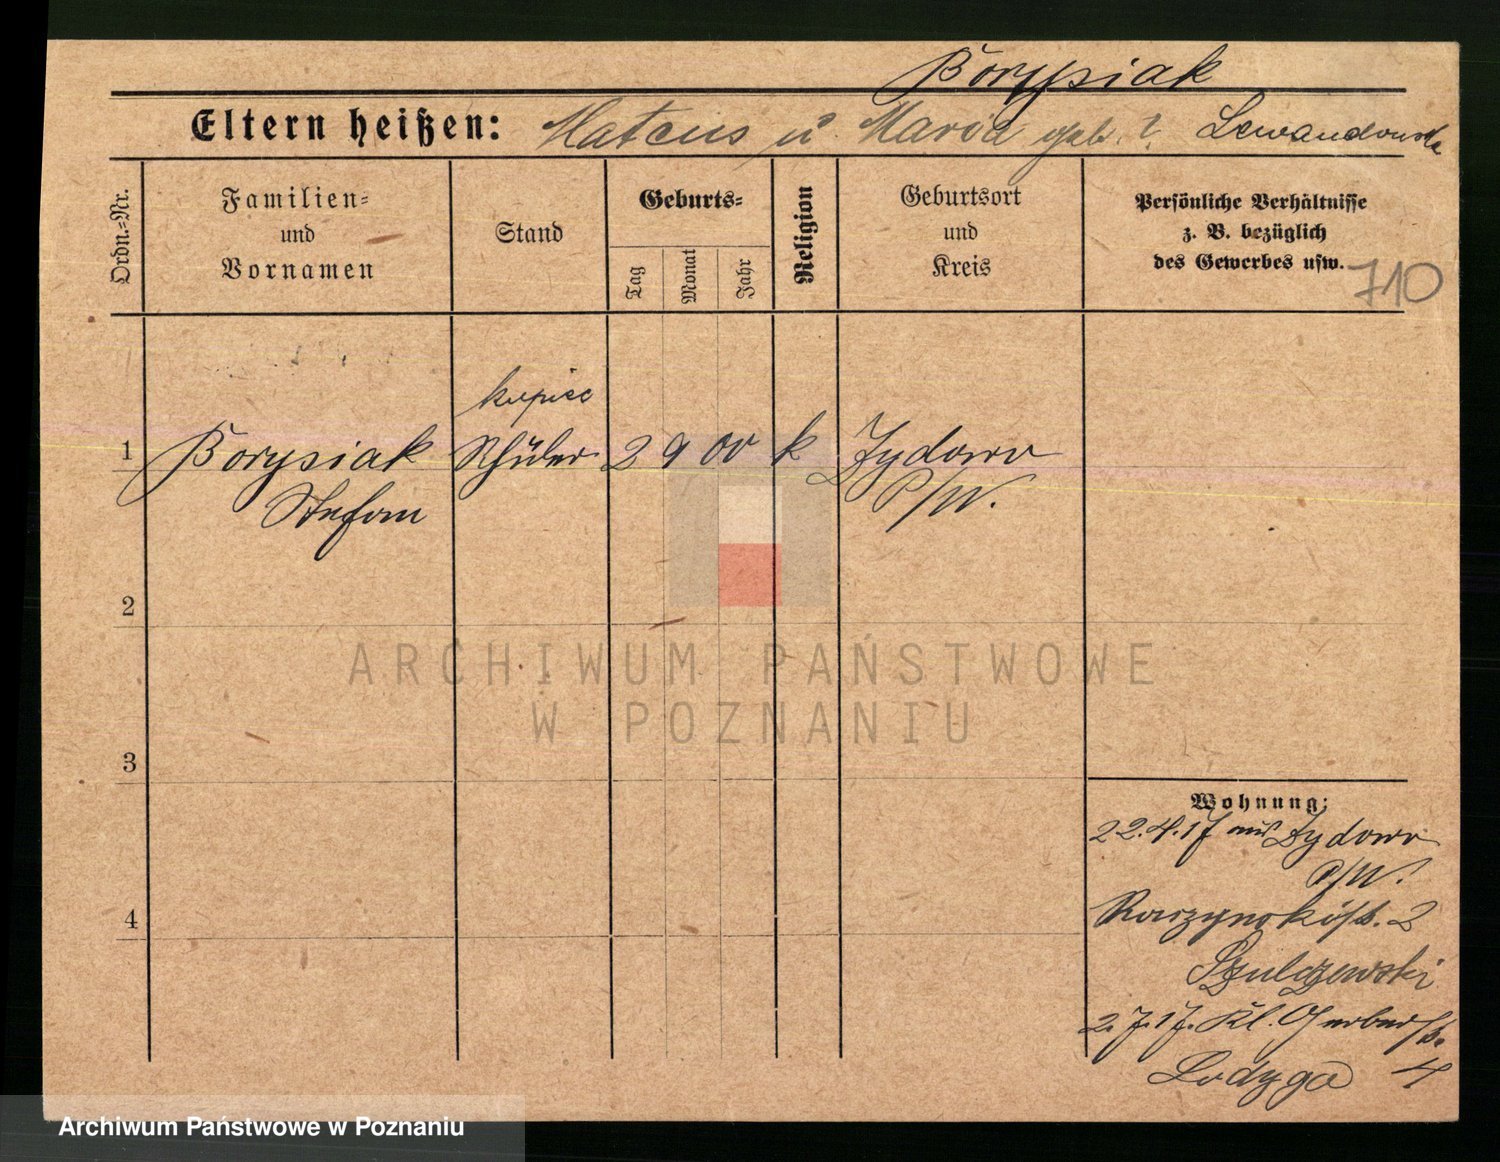 Borysiak
Eltern heißen: Mateus u. Maria geb. ? Lewandowska
Ordn.-Nr.
Familien- und Vornamen
Stand
Geburts-
Tag
Monat
Jahr
Religion
Geburtsort und Kreis
Persönliche Verhältnisse
z. B. bezüglich
des Gewerbes usw.
710
kupiec
1 Borysiak Schüler 2 9 00 k Zydowo
Stefan P/W.
2
3
4
Wohnung:
22.4.17 aus Zydowo
P/W.
2
Szulczewski
2.7.17. Kl. Gerberstr.
Lodyga 4
ARCHIWUM PAŃSTWOWE
W POZNANIU
Archiwum Państwowe w Poznaniu